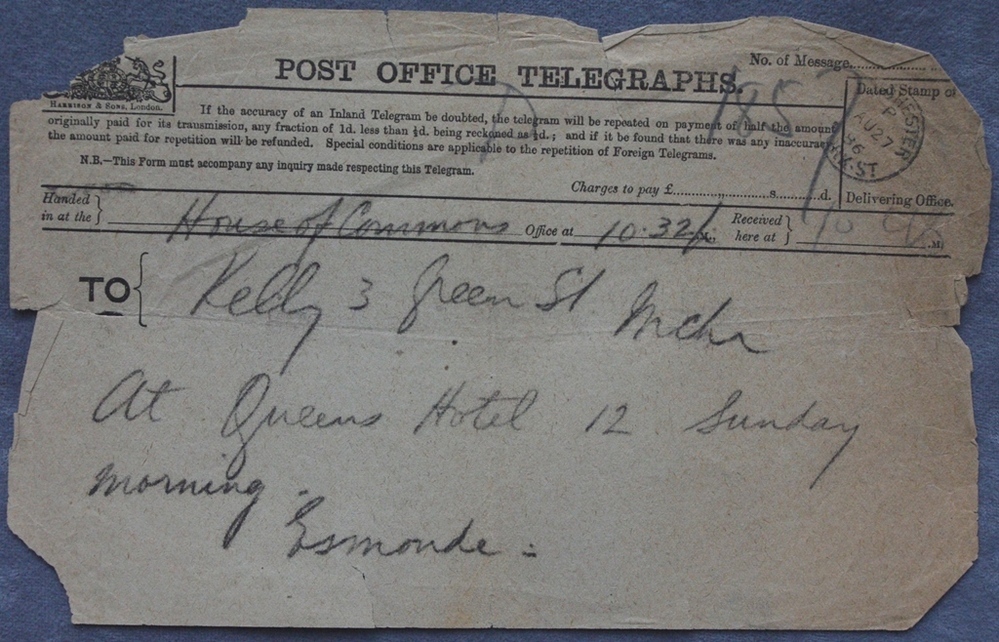 No. of Message
POST OFFICE TELEGRAPHS.
HARRISON & SONS, London.
Dated Stamp of
If the accuracy of an Inland Telegram be doubted, the telegram will be repeated on payment of half the amount
originally paid for its transmission, any fraction of 1d. less than ½d. being reckoned as ½d.; and if it be found that there was any inaccuracy
the amount paid for repetition will be refunded. Special conditions are applicable to the repetition of Foreign Telegrams.
N.B.—This Form must accompany any inquiry made respecting this Telegram.
185
AU 27
96
Charges to pay £ s d.
Delivering Office.
Handed in at the } House of Commons Office at 10.32 Received here at } M
TO { Kelly 3 Green St Mchr
At Queens Hotel 12 Sunday
morning.
Esmonde